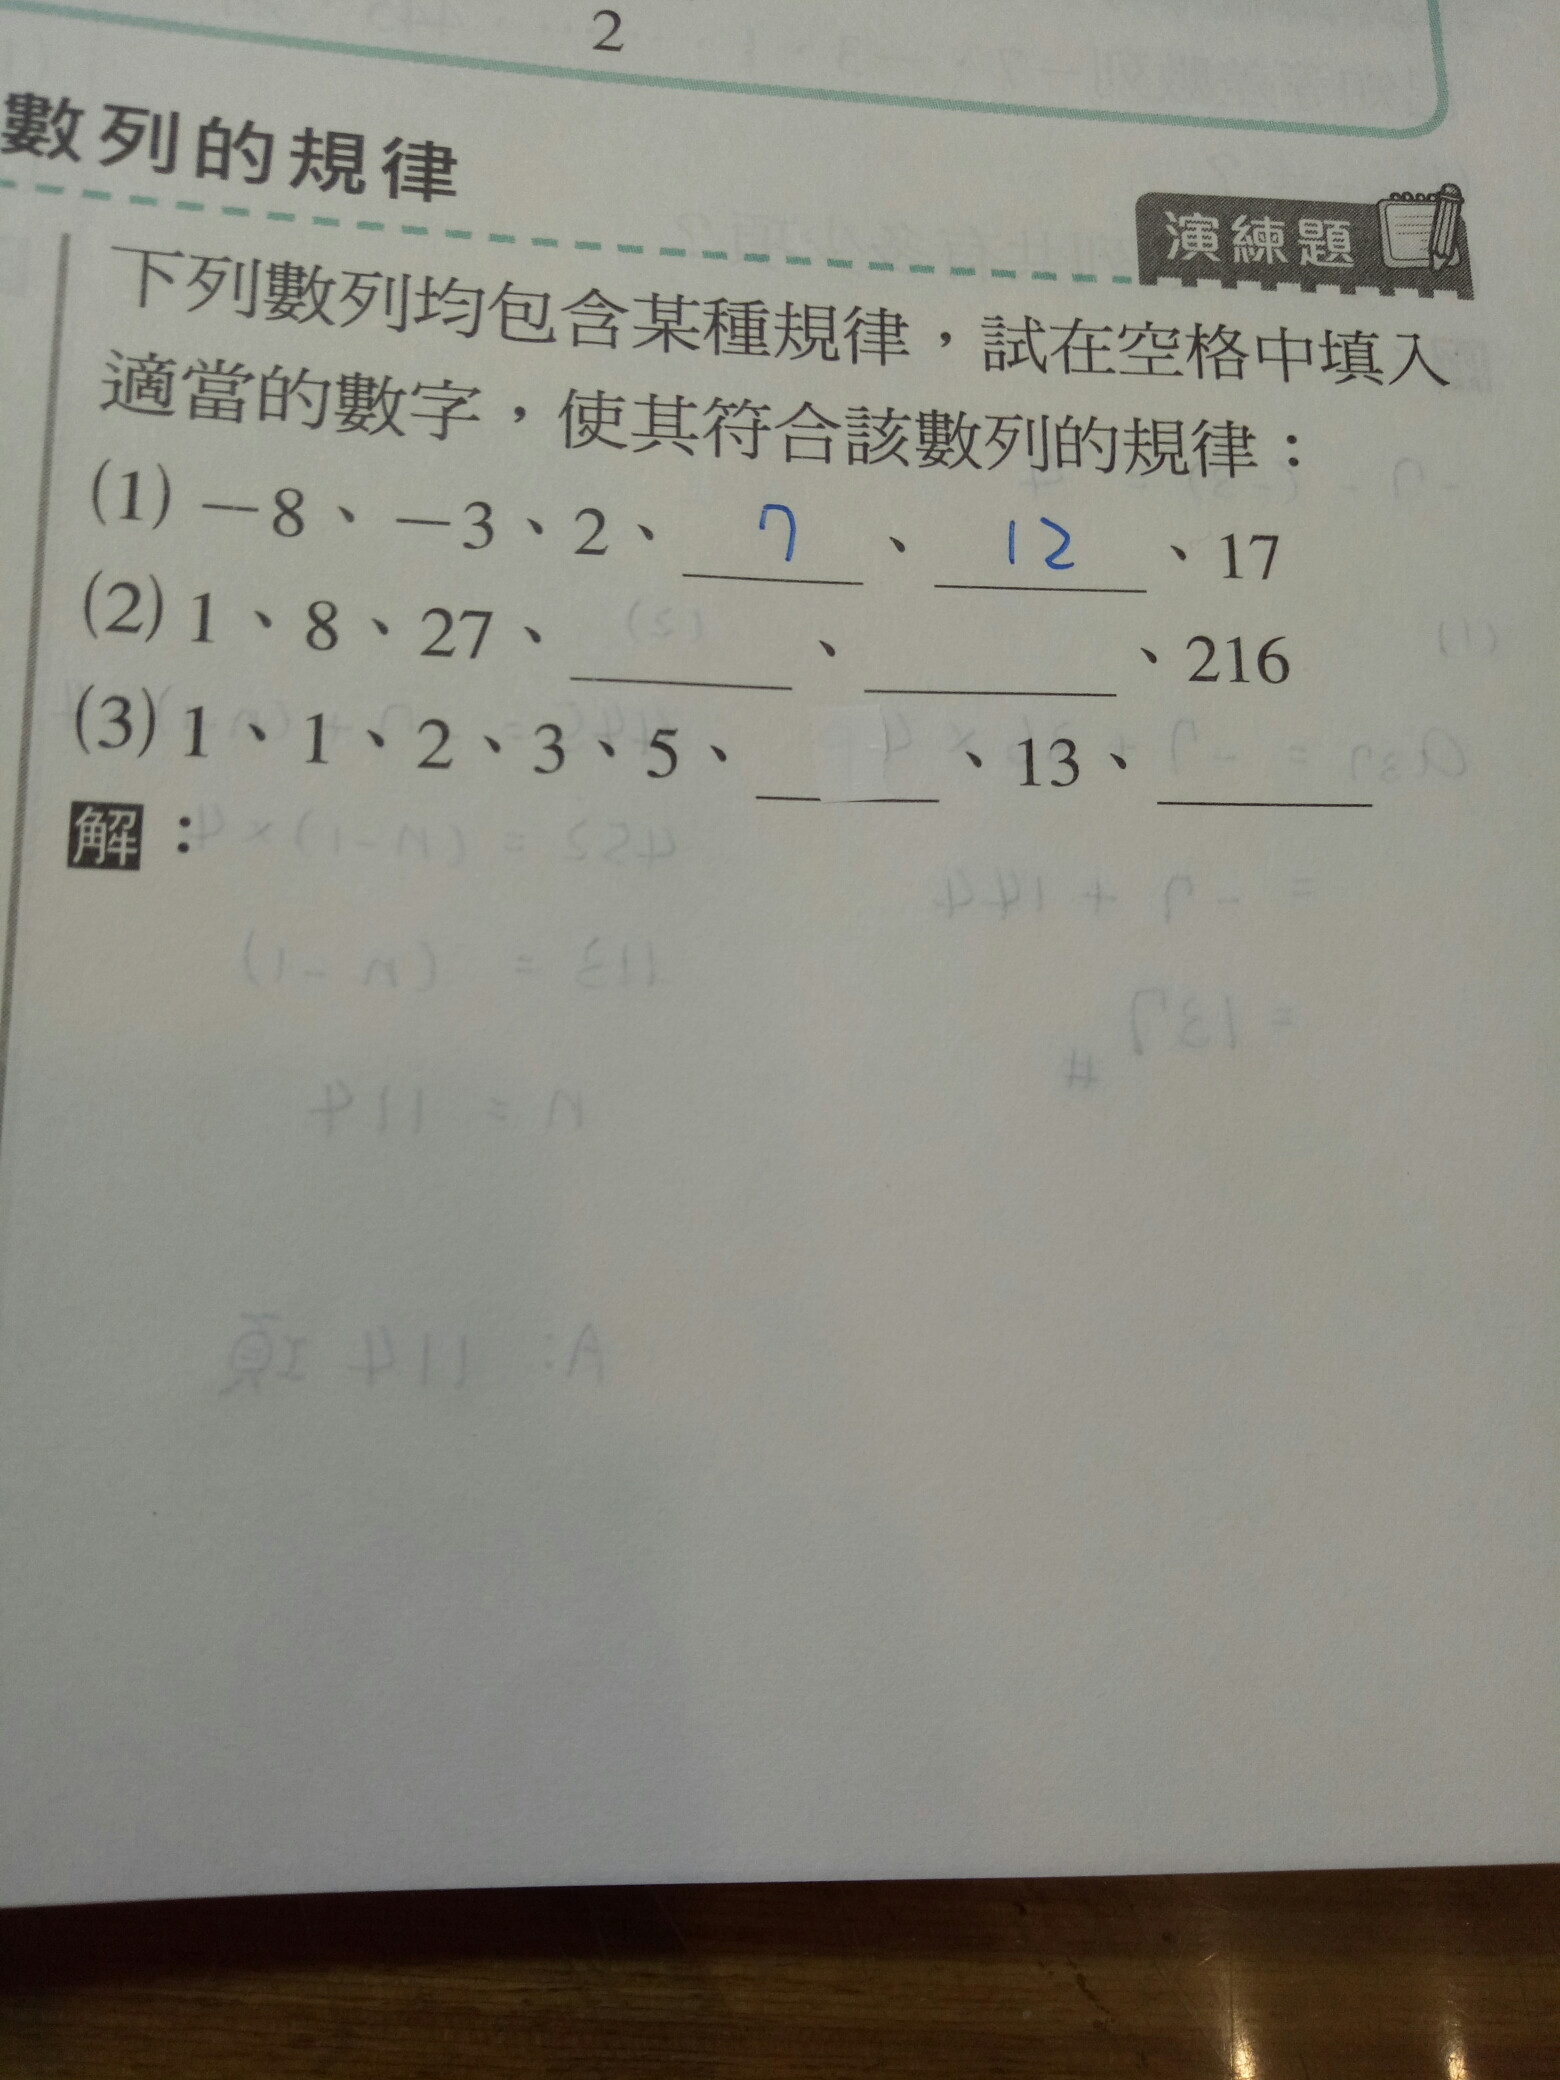 2
數列的規律
演練題
下列數列均包含某種規律，試在空格中填入
適當的數字，使其符合該數列的規律：
(1) －8、－3、2、 7 、 12 、17
(2) 1、8、27、＿＿＿、＿＿＿、216
(3) 1、1、2、3、5、＿＿＿、13、＿＿＿
解：